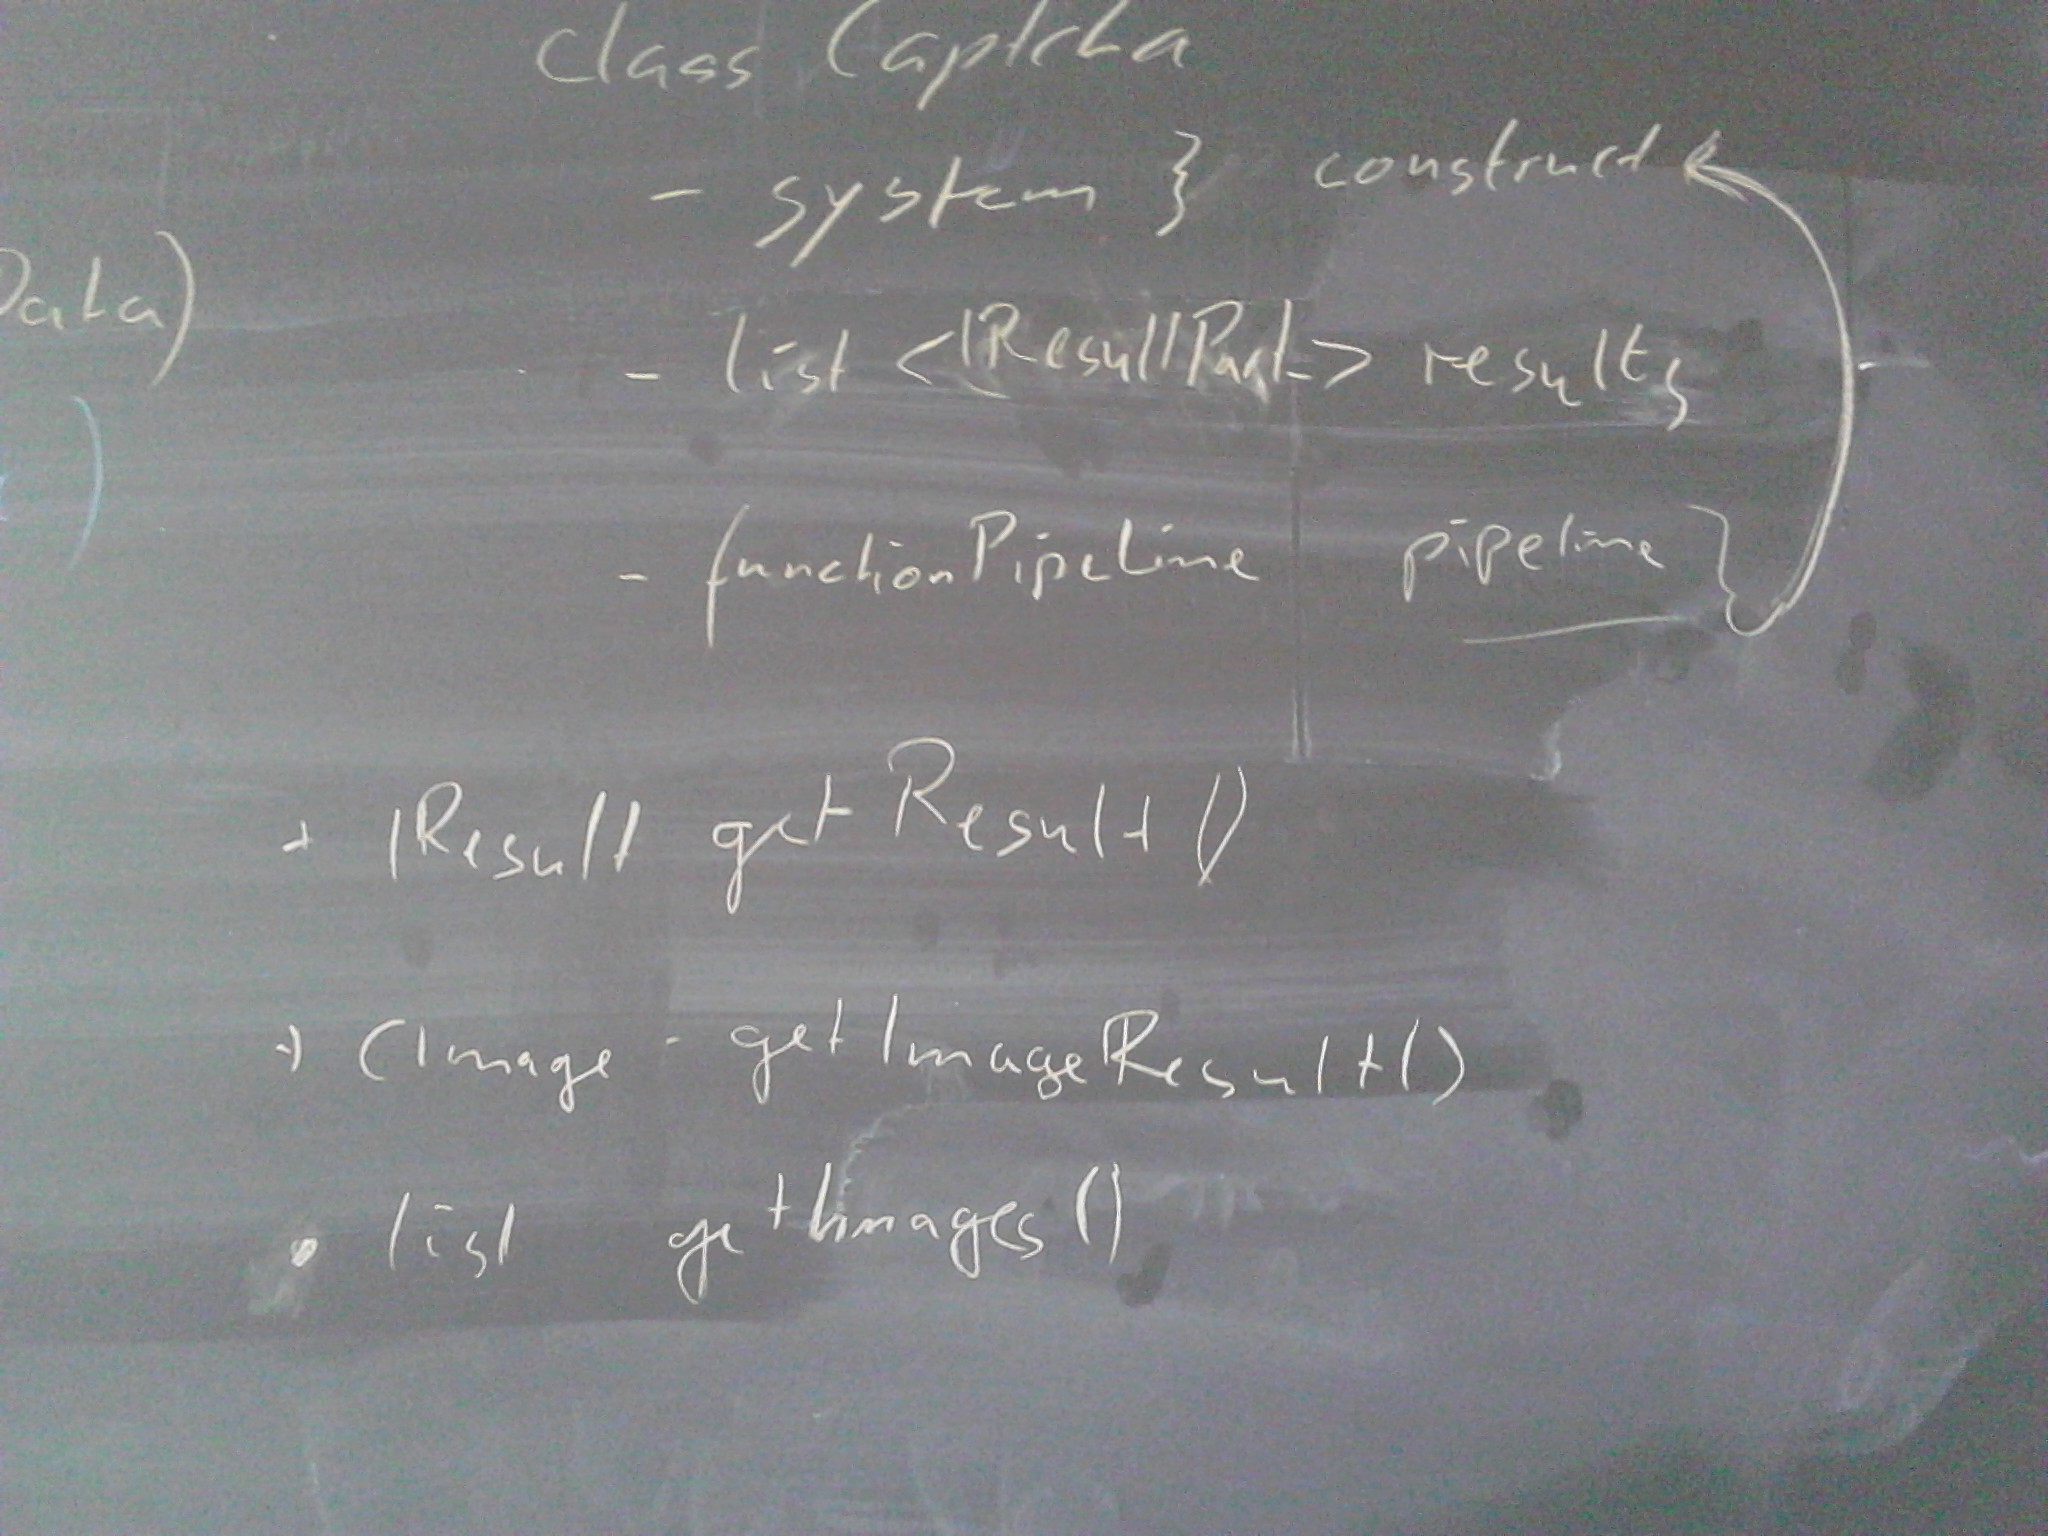 class Captcha
- system } construct
Data)
- list <IResultPart> results
)
- functionPipeline pipeline }
+ IResult getResult()
+ CImage - getImageResult()
• list getImages()